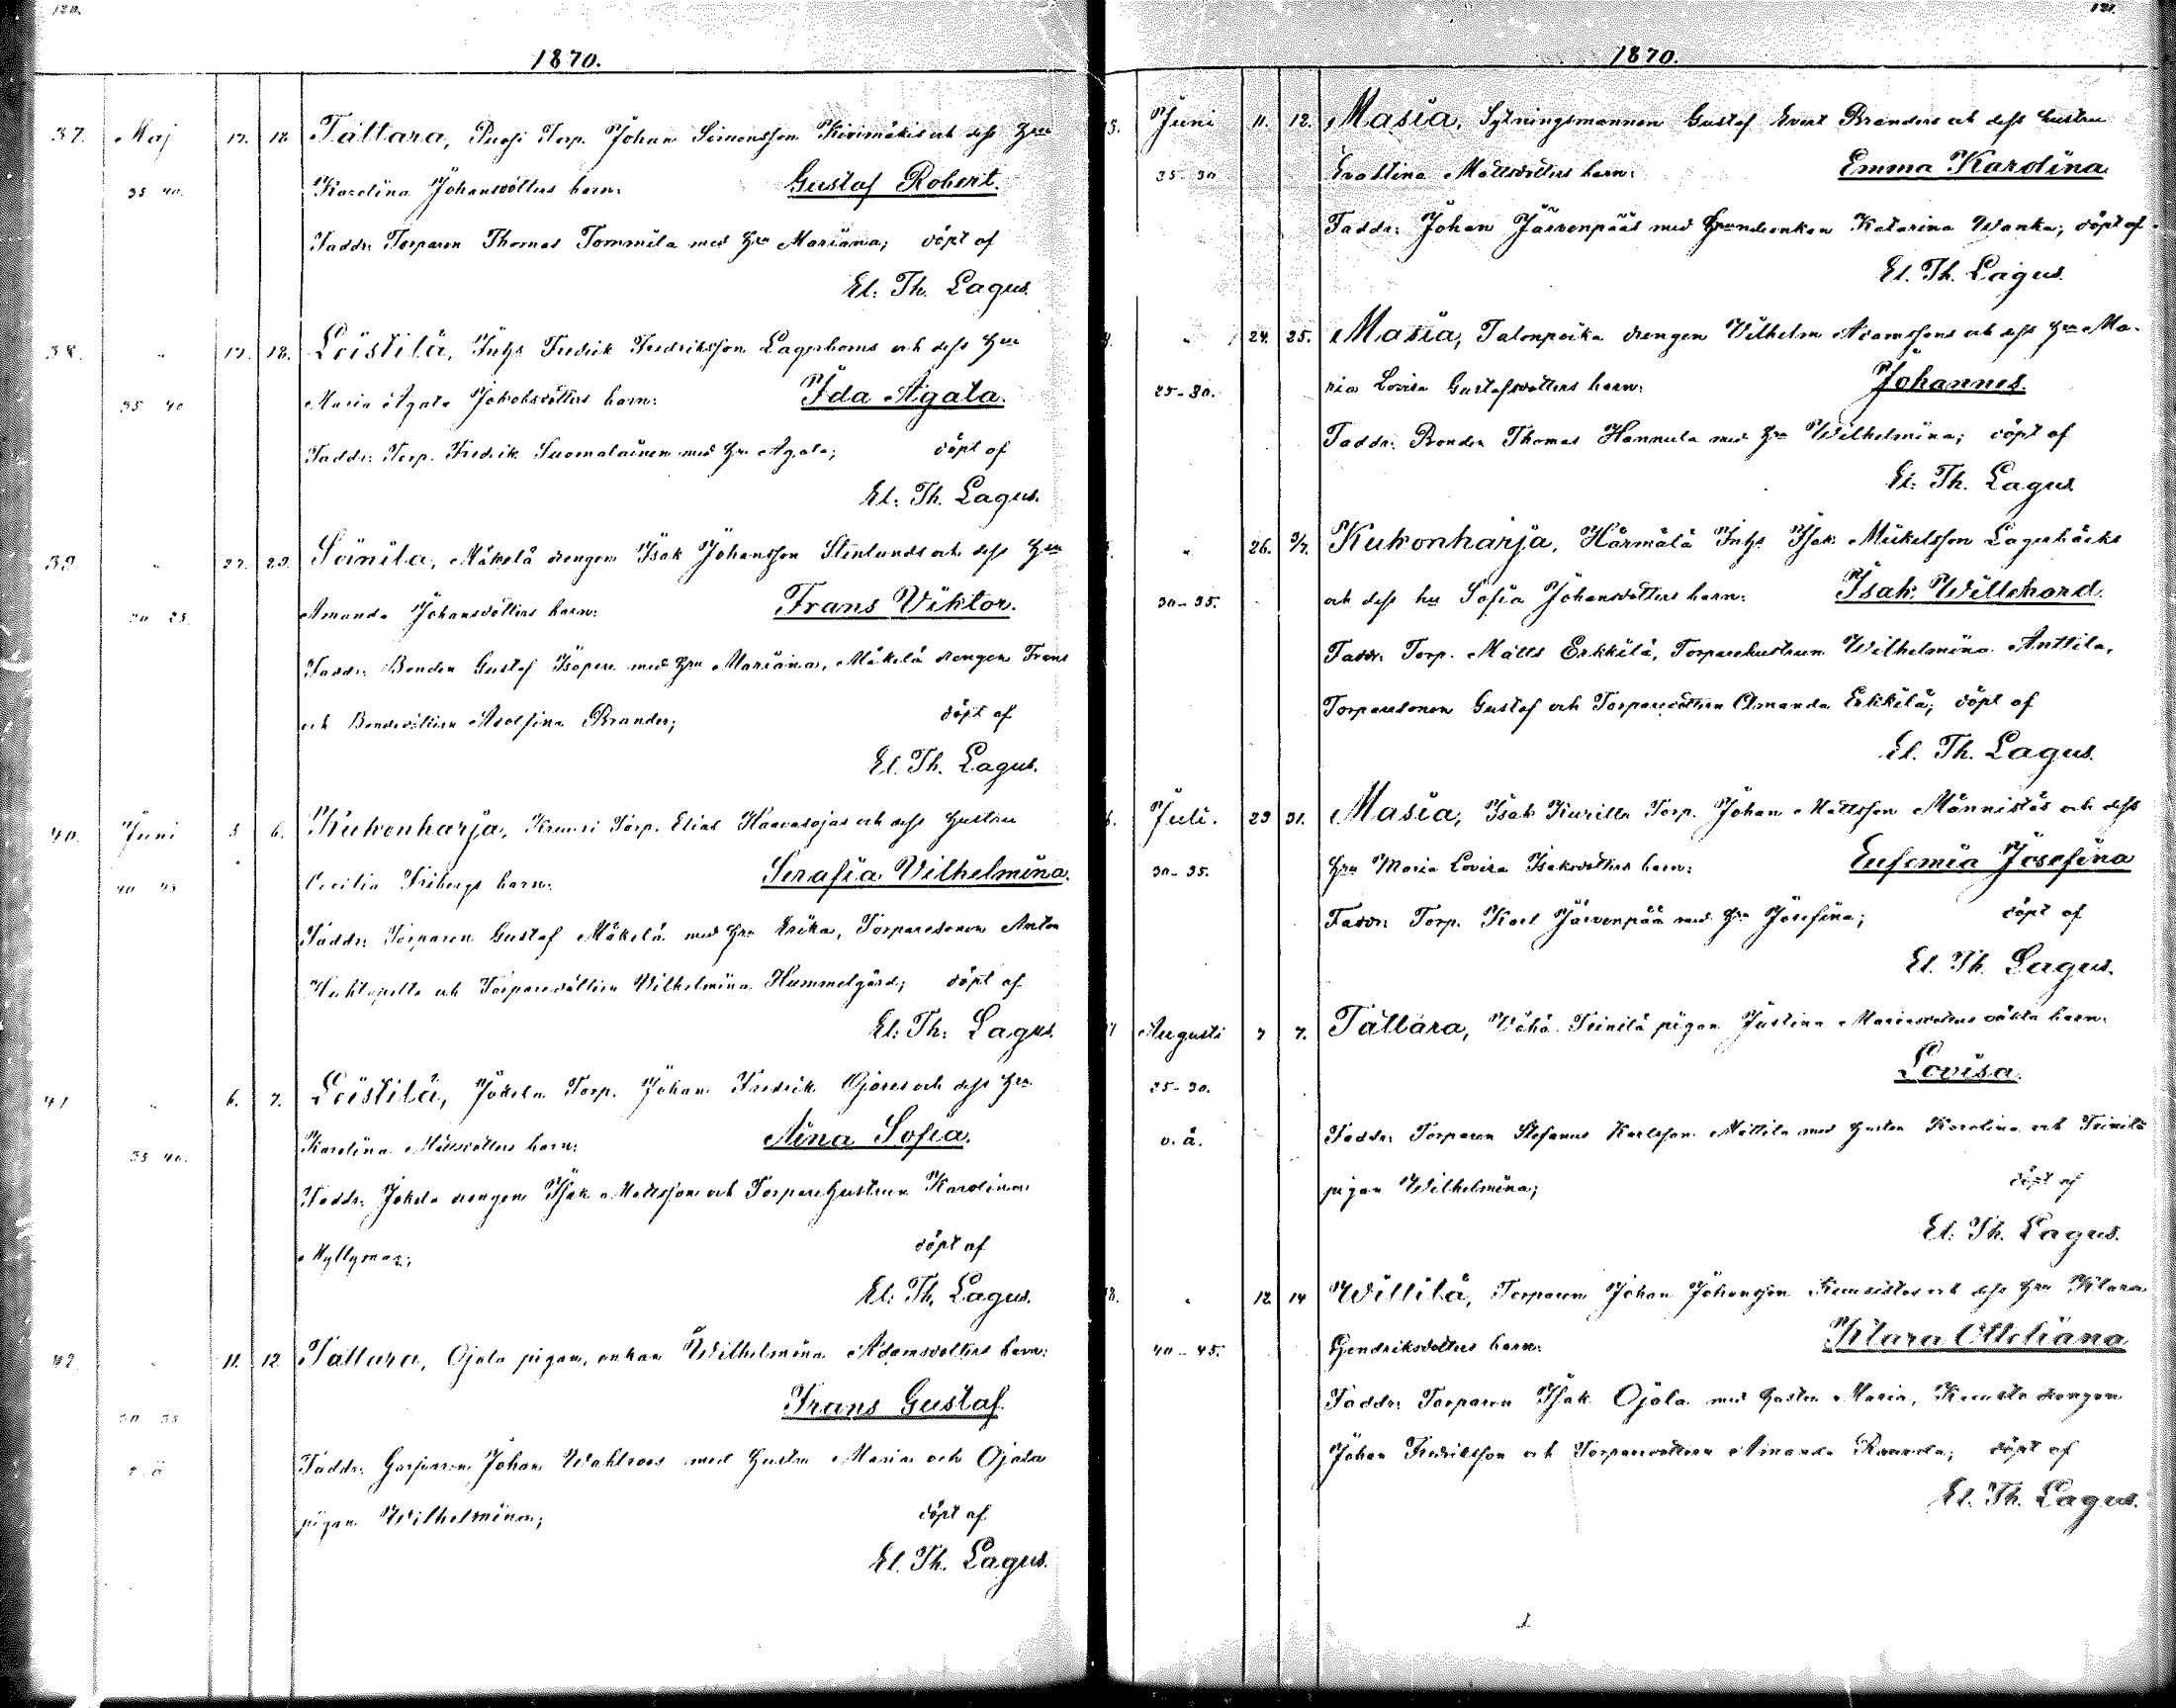 120.
1870.
37. Maj 17. 18. Tattara, Torp. Johan Simonsson och dess Hru
35 40. Karolina Johansdotters barn: Gustaf Robert.
Faddr: Torparen Thomas Tommila med Hru Mariana; döpt af
El. Th. Lagus.
38. " 17. 18. Loistila, Inhs Fredrik Fredriksson Lagerboms och dess Hru
35 40 Maria Agata Jakobsdotters barn: Ida Agata.
Faddr: Torp. Fredrik Suomalainen med Hru Agata; döpt af
El. Th. Lagus.
39 " 27. 29. Soinila, Mäkelä drengen Isak Johansson Stenlunds och dess Hru
20 25. Amanda Johansdotters barn: Frans Viktor.
Faddr: Bonden Gustaf Isopere med Hru Mariana, Mäkelä drengen Frans
och Bondedottren Adolfina Brander; döpt af
El. Th. Lagus.
40. Juni 5 6. Kukonharja, Torp. Elias Haavasojas och dess Hustru
40 45 Cecilia Fribergs barn: Serafia Vilhelmina.
Faddr: Torparen Gustaf Mäkelä med Hru Erika, Torparesonen Anton
och Torparedottren Wilhelmina Hummelgård; döpt af
El. Th. Lagus.
41 " 6. 7. Loistila, Jokela Torp. Johan Fredrik Ojares och dess Hru
35 40. Karolina Mattsdotters barn: Aina Sofia.
Faddr: Jokela drengen Isak Mattsson och Torparehustrun Karolina
Myllymaa; döpt af
El. Th. Lagus.
42. " 11. 12. Tattara, Ojala pigan, enkan Wilhelmina Adamsdotters barn:
30 35 Frans Gustaf.
Faddr: Johan Wahlroos med Hustru Maria och Ojala
pigan Wilhelmina; döpt af
El. Th. Lagus.
121.
1870.
Juni 11. 12. Masia, Sytningsmannen Gustaf Evert Branders och dess hustru
25-30 Mattsdotters barn: Emma Karolina.
Faddr: Johan Järvenpää med Katarina Wanka; döpt af
El. Th. Lagus.
" 24. 25. Masia, Talonpoika drengen Vilhelm Adamssons och dess Hru Ma-
25-30. ria Lovisa Gustafsdotters barn: Johannes.
Faddr: Bonden Thomas Hannula med Hru Wilhelmina; döpt af
El. Th. Lagus.
" 26. 3/7. Kukonharja, Härmälä Inhs Isak Mickelsson Lagerbäcks
30-35. och dess hu Sofia Johansdotters barn: Isak Willehard.
Faddr: Torp. Matts Erkkilä, Torparehustrun Wilhelmina Anttila,
Torparesonen Gustaf och Torparedottren Amanda Erkkilä; döpt af
El. Th. Lagus.
Juli. 29 31. Masia, Isak Kurilla Torp. Johan Mattsson Männistös och dess
30-35. Hru Maria Lovisa Isaksdotters barn: Eufemia Josefina
Faddr: Torp. Karl Järvenpää med Hru Josefina; döpt af
El. Th. Lagus.
Augusti 7 7. Tattara, Vähä Teinilä pigan Justina Mariasdotters oäkta barn:
25-30. Lovisa.
o. ä. Faddr: Torparen Stefanus Karlsson Mattila med hustru Karolina och Teinilä
pigan Wilhelmina; döpt af
El. Th. Lagus.
" 12. 14 Willilä, Torparen Johan Johansson och dess Hru Klara
40-45. Hendriksdotters barn: Klara Ottiliana
Faddr: Torparen Isak Ojala med hustru Maria, drengen
Johan Fredriksson och Torparedottren Amanda; döpt af
El. Th. Lagus.